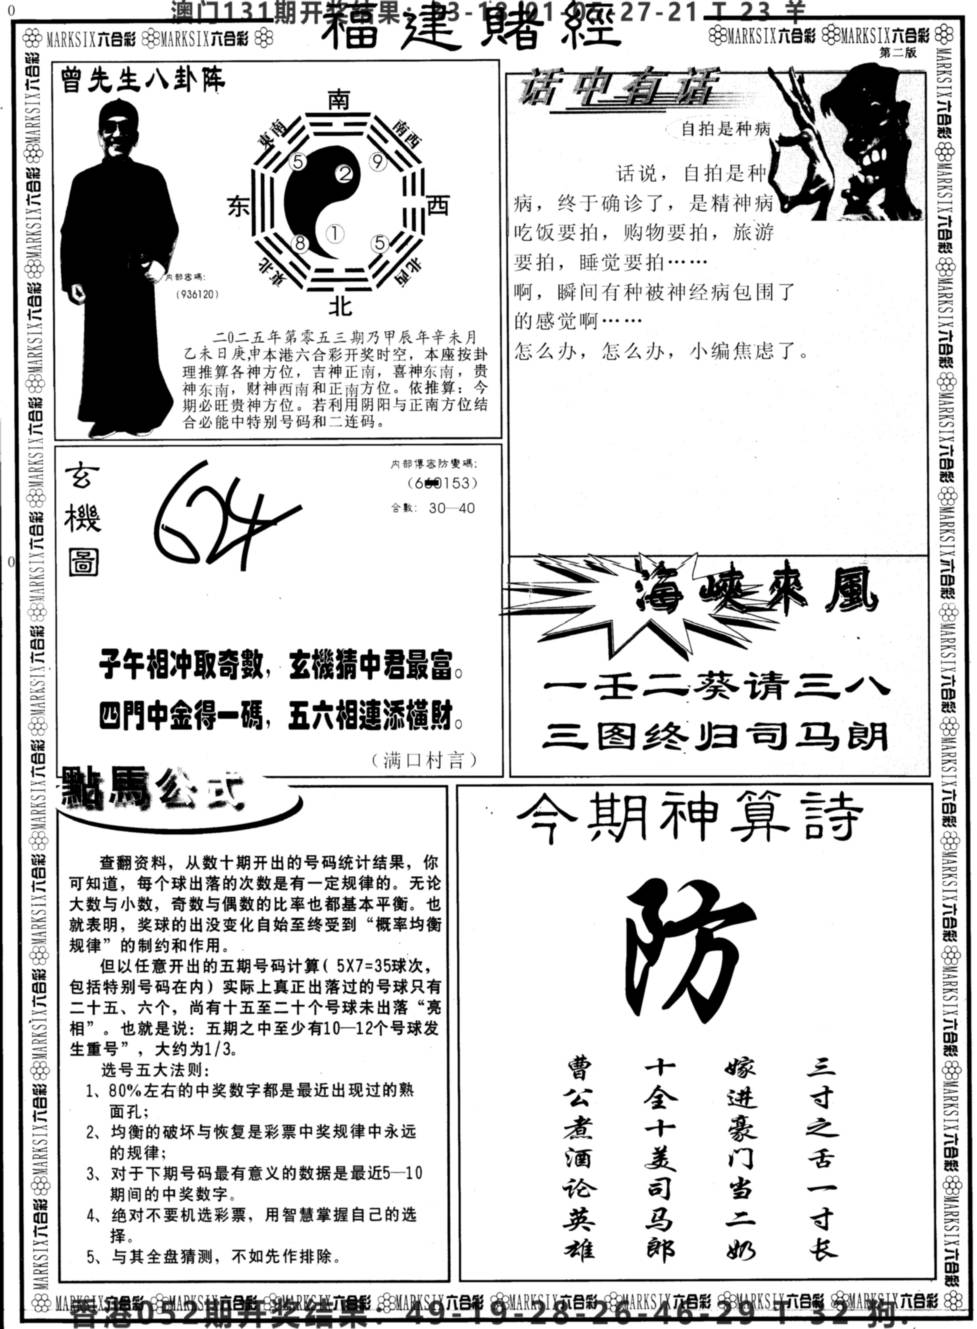 澳门131期开奖结果:
27-21 T 23 羊
福建賭經
MARKSIX六合彩 MARKSIX六合彩
MARKSIX六合彩 MARKSIX六合彩
第二版
曾先生八卦阵
南
東南
南西
⑤
②
⑨
东
西
⑧
①
⑤
東北
北西
北
内部密碼:
(936120)
二0二五年第零五三期乃甲辰年辛未月
乙未日庚申本港六合彩开奖时空，本座按卦
理推算各神方位，吉神正南，喜神东南，贵
神东南，财神西南和正南方位。依推算：今
期必旺贵神方位。若利用阴阳与正南方位结
合必能中特别号码和二连码。
话中有话
自拍是种病
话说，自拍是种
病，终于确诊了，是精神病
吃饭要拍，购物要拍，旅游
要拍，睡觉要拍……
啊，瞬间有种被神经病包围了
的感觉啊……
怎么办，怎么办，小编焦虑了。
玄機圖
624
内部傳密防變碼:
合數: 30—40
子午相冲取奇數，玄機猜中君最富。
四門中金得一碼，五六相連添橫財。
（满口村言）
海峽來風
一壬二葵请三八
三图终归司马朗
點馬公式
查翻资料，从数十期开出的号码统计结果，你
可知道，每个球出落的次数是有一定规律的。无论
大数与小数，奇数与偶数的比率也都基本平衡。也
就表明，奖球的出没变化自始至终受到“概率均衡
规律”的制约和作用。
但以任意开出的五期号码计算( 5X7=35球次，
包括特别号码在内）实际上真正出落过的号球只有
二十五、六个，尚有十五至二十个号球未出落“亮
相”。也就是说：五期之中至少有10—12个号球发
生重号”，大约为1/3。
选号五大法则:
1、80%左右的中奖数字都是最近出现过的熟
面孔;
2、均衡的破坏与恢复是彩票中奖规律中永远
的规律;
3、对于下期号码最有意义的数据是最近5—10
期间的中奖数字。
4、绝对不要机选彩票，用智慧掌握自己的选
择。
5、与其全盘猜测，不如先作排除。
今期神算詩
防
三寸之舌一寸长
嫁进豪门当二奶
十全十美司马郎
曹公煮酒论英雄
香港052期开奖结果: 49-19-28-26-46-29 T 32 狗.